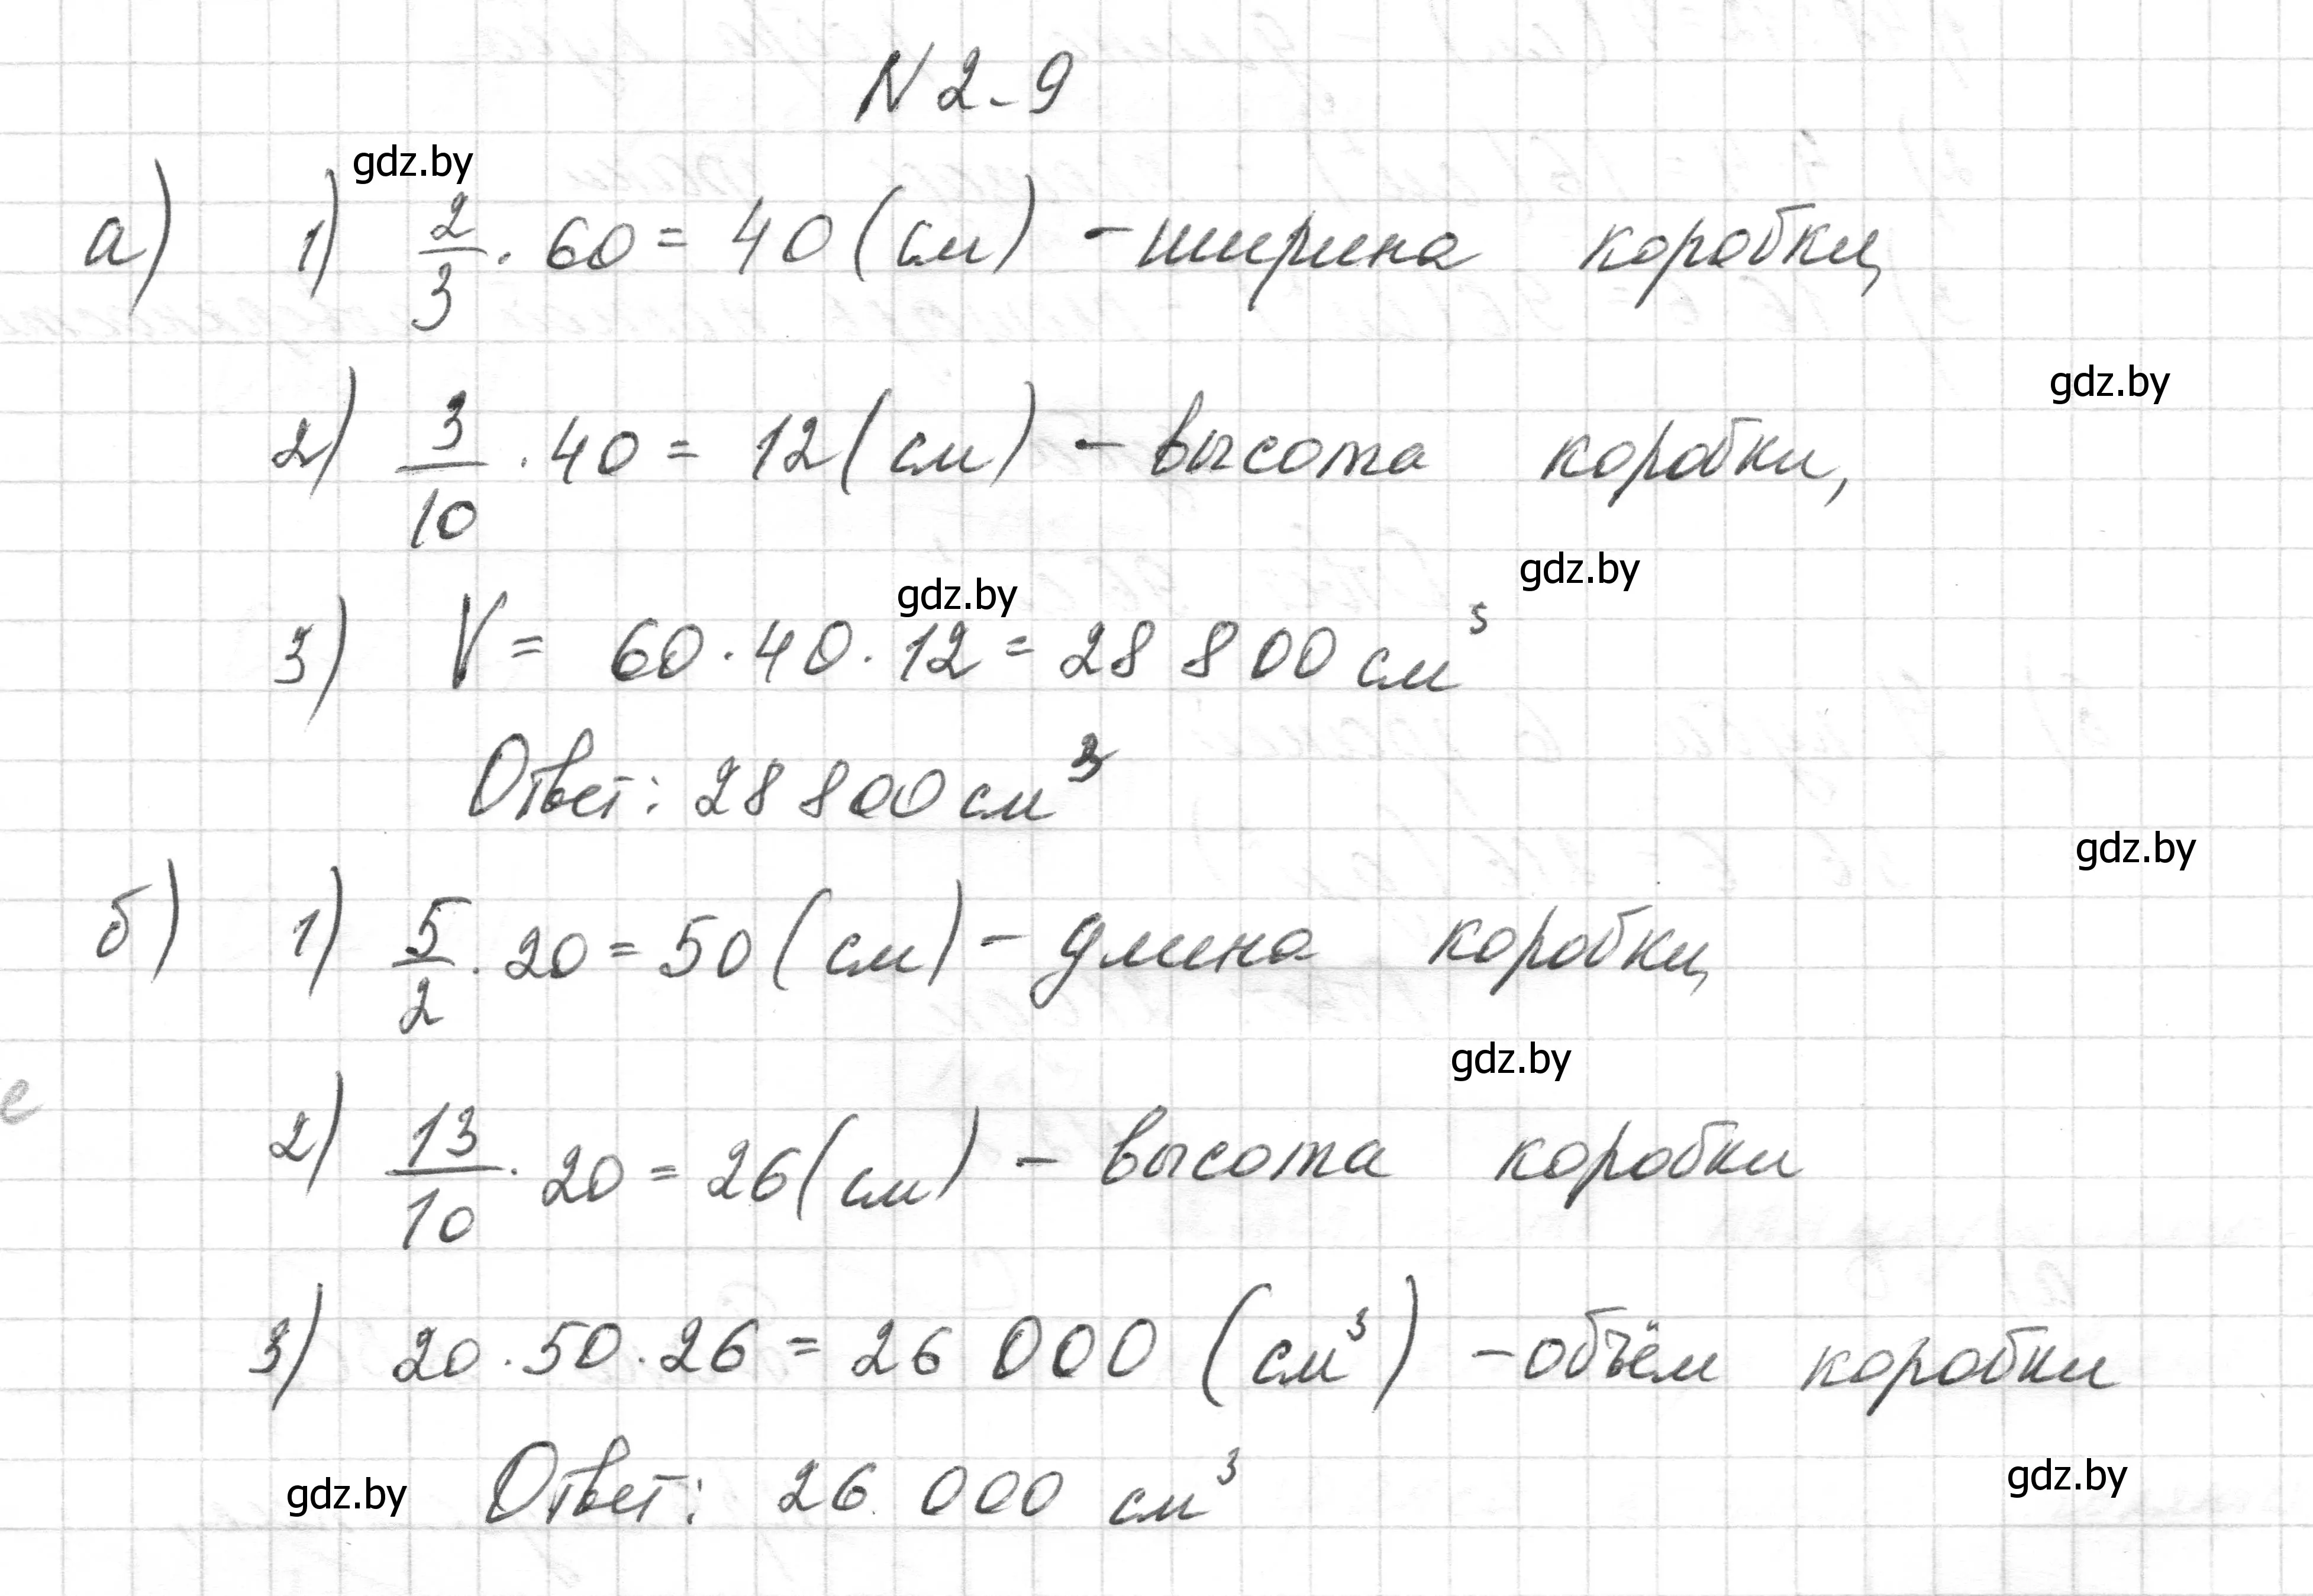 N 2-9
gdz.by
а) 1) 2/3 · 60 = 40 (см) - ширина коробки,
gdz.by
2) 3/10 · 40 = 12 (см) - высота коробки,
gdz.by
gdz.by
3) V = 60 · 40 · 12 = 28 800 см³
Ответ: 28 800 см³
gdz.by
б) 1) 5/2 · 20 = 50 (см) - длина коробки,
gdz.by
2) 13/10 · 20 = 26 (см) - высота коробки
3) 20 · 50 · 26 = 26 000 (см³) - объём коробки
gdz.by
Ответ: 26 000 см³
gdz.by